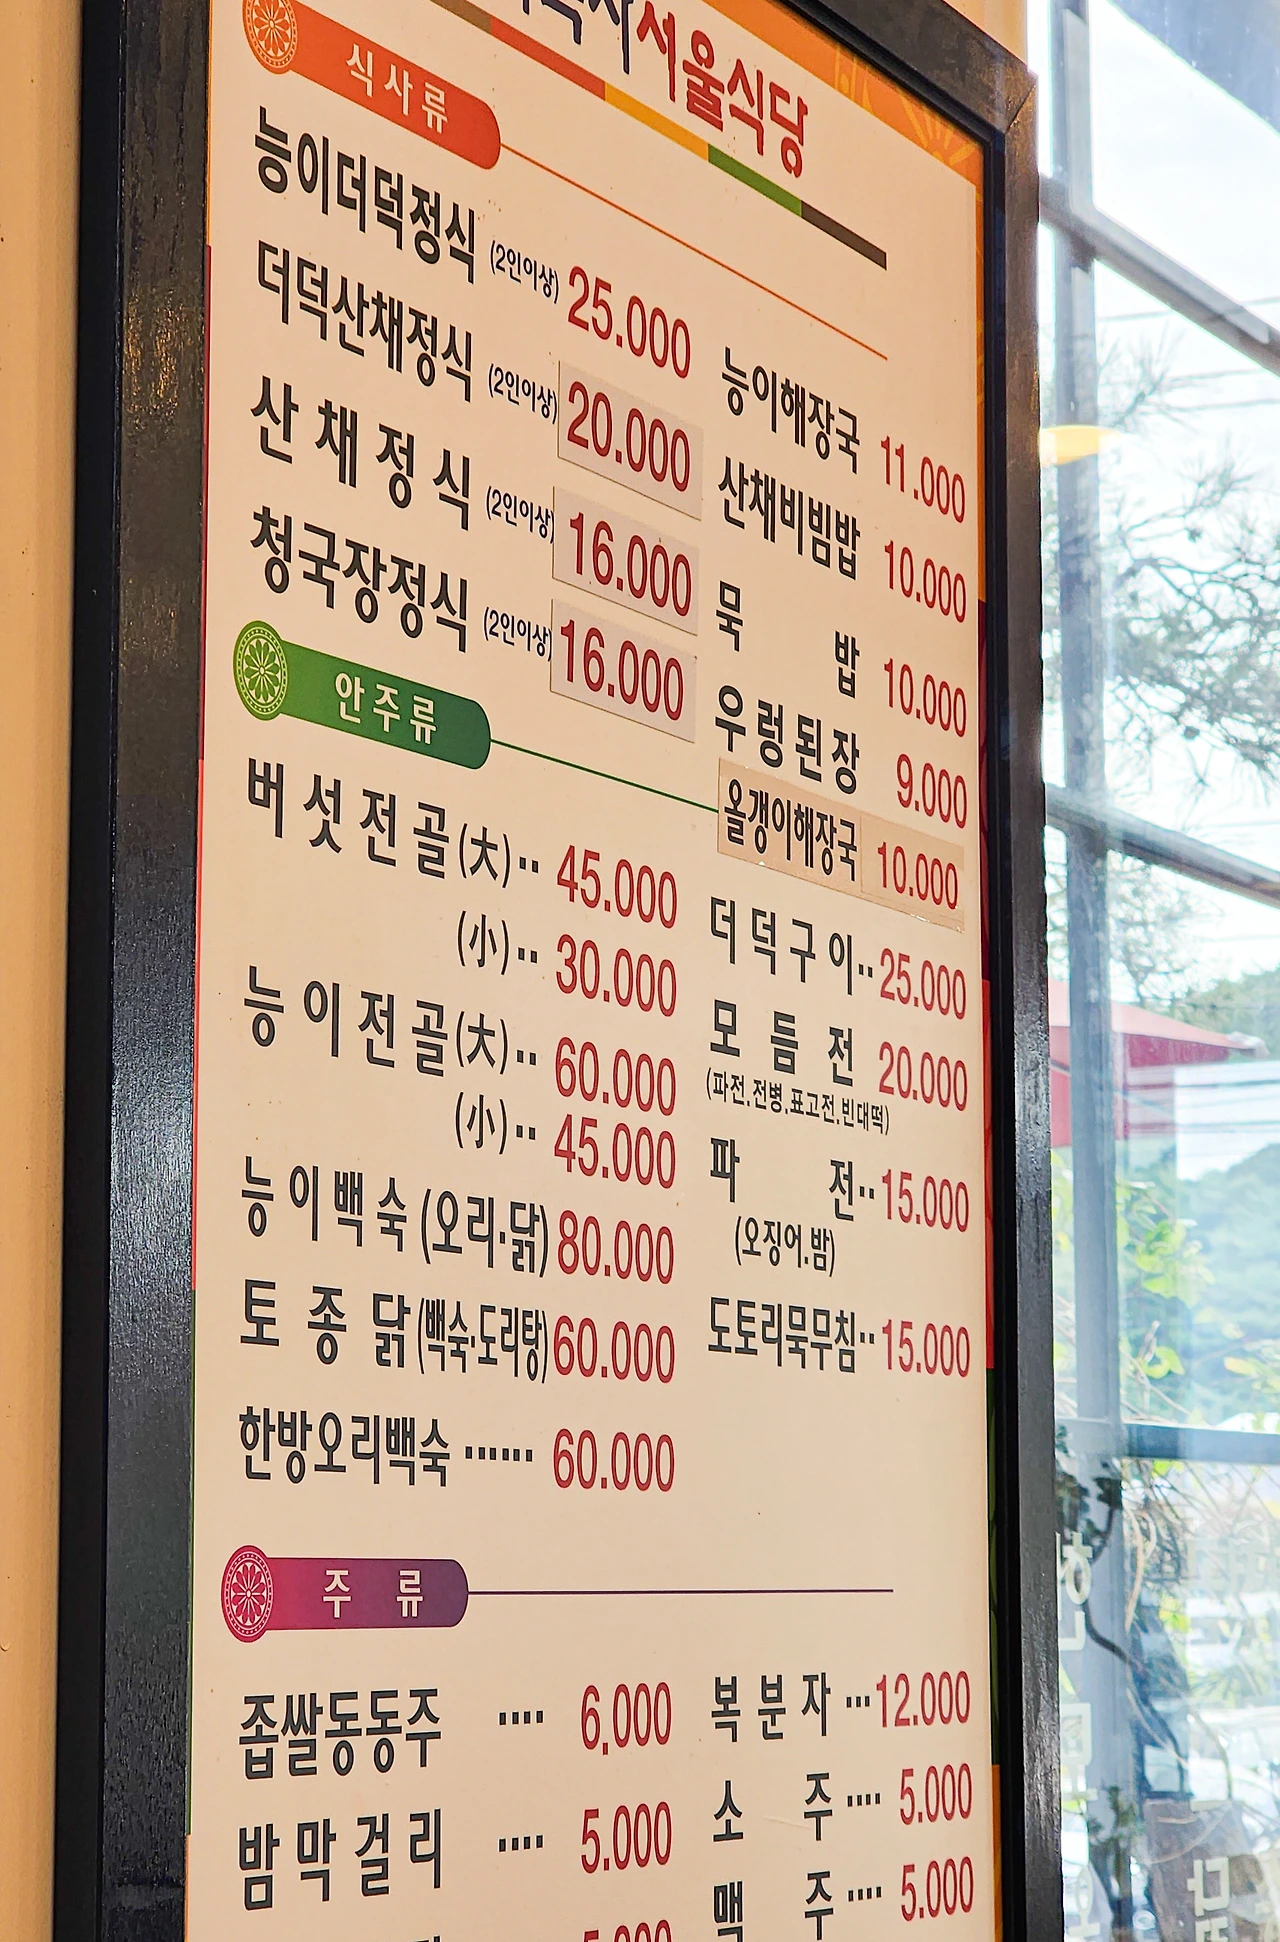 서울식당
식사류
능이더덕정식 (2인이상) 25.000
더덕산채정식 (2인이상) 20.000
산채정식 (2인이상) 16.000
청국장정식 (2인이상) 16.000
능이해장국 11.000
산채비빔밥 10.000
묵 밥 10.000
우렁된장 9.000
올갱이해장국 10.000
안주류
버섯전골(大)·· 45.000
(小)·· 30.000
능이전골(大)·· 60.000
(小)·· 45.000
능이백숙(오리·닭) 80.000
토종닭(백숙·도리탕) 60.000
한방오리백숙 ······ 60.000
더덕구이·· 25.000
모듬전 20.000
(파전.전병.표고전.빈대떡)
파 전·· 15.000
(오징어.밤)
도토리묵무침·· 15.000
주 류
좁쌀동동주 ···· 6.000
밤막걸리 ···· 5.000
복분자 ··· 12.000
소 주 ···· 5.000
맥 주 ···· 5.000